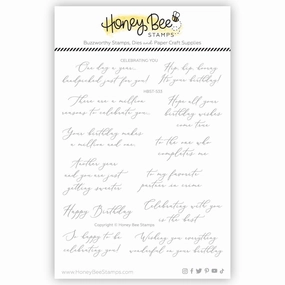 Honey Bee
STAMPS
Buzzworthy Stamps, Dies and Paper Craft Supplies
CELEBRATING YOU
One day a year...
handpicked just for you!
Hip hip hooray
It's your birthday!
HB01
There are a million
reasons to celebrate you...
Hope all your
birthday wishes
come true
Your birthday makes
a million and one.
to the one who
completes me
Another year
and you are just
getting sweeter
to my favorite
partner in crime
Happy Birthday
Celebrating with you
is the best
Copyright © Honey Bee Stamps
So happy to be
celebrating you!
Wishing you everything
wonderful on your birthday
www.HoneyBeeStamps.com